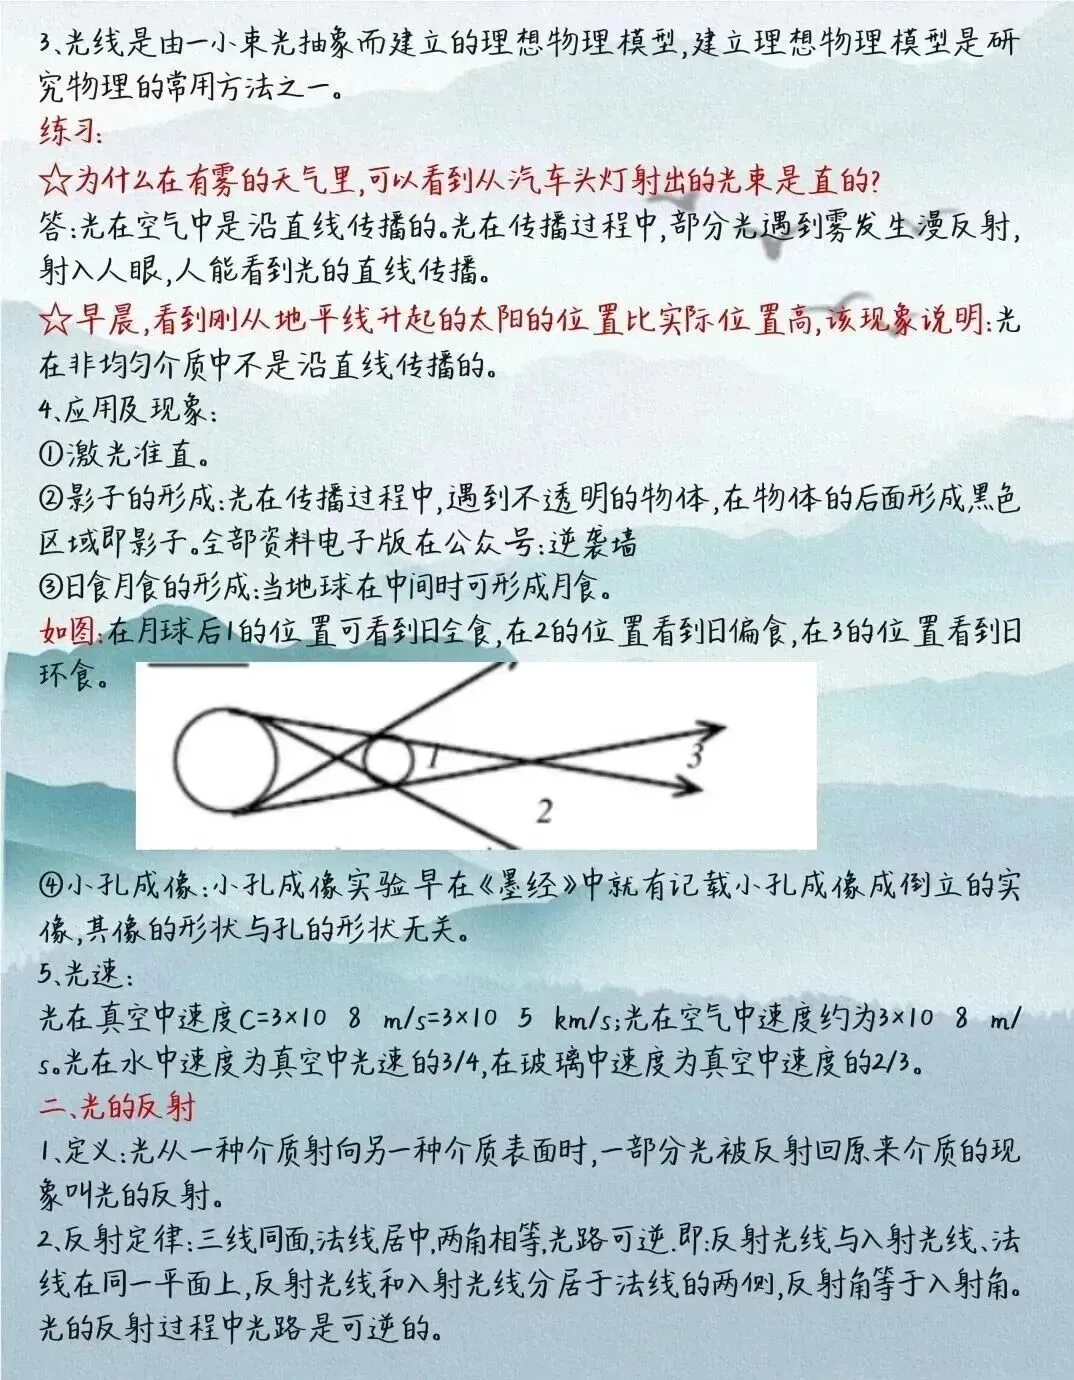 3、光线是由一小束光抽象而建立的理想物理模型,建立理想物理模型是研
究物理的常用方法之一。
练习:
☆为什么在有雾的天气里,可以看到从汽车头灯射出的光束是直的?
答:光在空气中是沿直线传播的。光在传播过程中,部分光遇到雾发生漫反射,
射入人眼,人能看到光的直线传播。
☆早晨,看到刚从地平线升起的太阳的位置比实际位置高,该现象说明:光
在非均匀介质中不是沿直线传播的。
4、应用及现象:
①激光准直。
②影子的形成:光在传播过程中,遇到不透明的物体,在物体的后面形成黑色
区域即影子。全部资料电子版在公众号:逆袭墙
③日食月食的形成:当地球在中间时可形成月食。
如图:在月球后1的位置可看到日全食,在2的位置看到日偏食,在3的位置看到日
环食。
1
3
2
④小孔成像:小孔成像实验早在《墨经》中就有记载小孔成像成倒立的实
像,其像的形状与孔的形状无关。
5、光速:
光在真空中速度C=3×10 8 m/s=3×10 5 km/s;光在空气中速度约为3×10 8 m/
s。光在水中速度为真空中光速的3/4,在玻璃中速度为真空中速度的2/3。
二、光的反射
1、定义:光从一种介质射向另一种介质表面时,一部分光被反射回原来介质的现
象叫光的反射。
2、反射定律:三线同面,法线居中,两角相等,光路可逆.即:反射光线与入射光线、法
线在同一平面上,反射光线和入射光线分居于法线的两侧,反射角等于入射角。
光的反射过程中光路是可逆的。